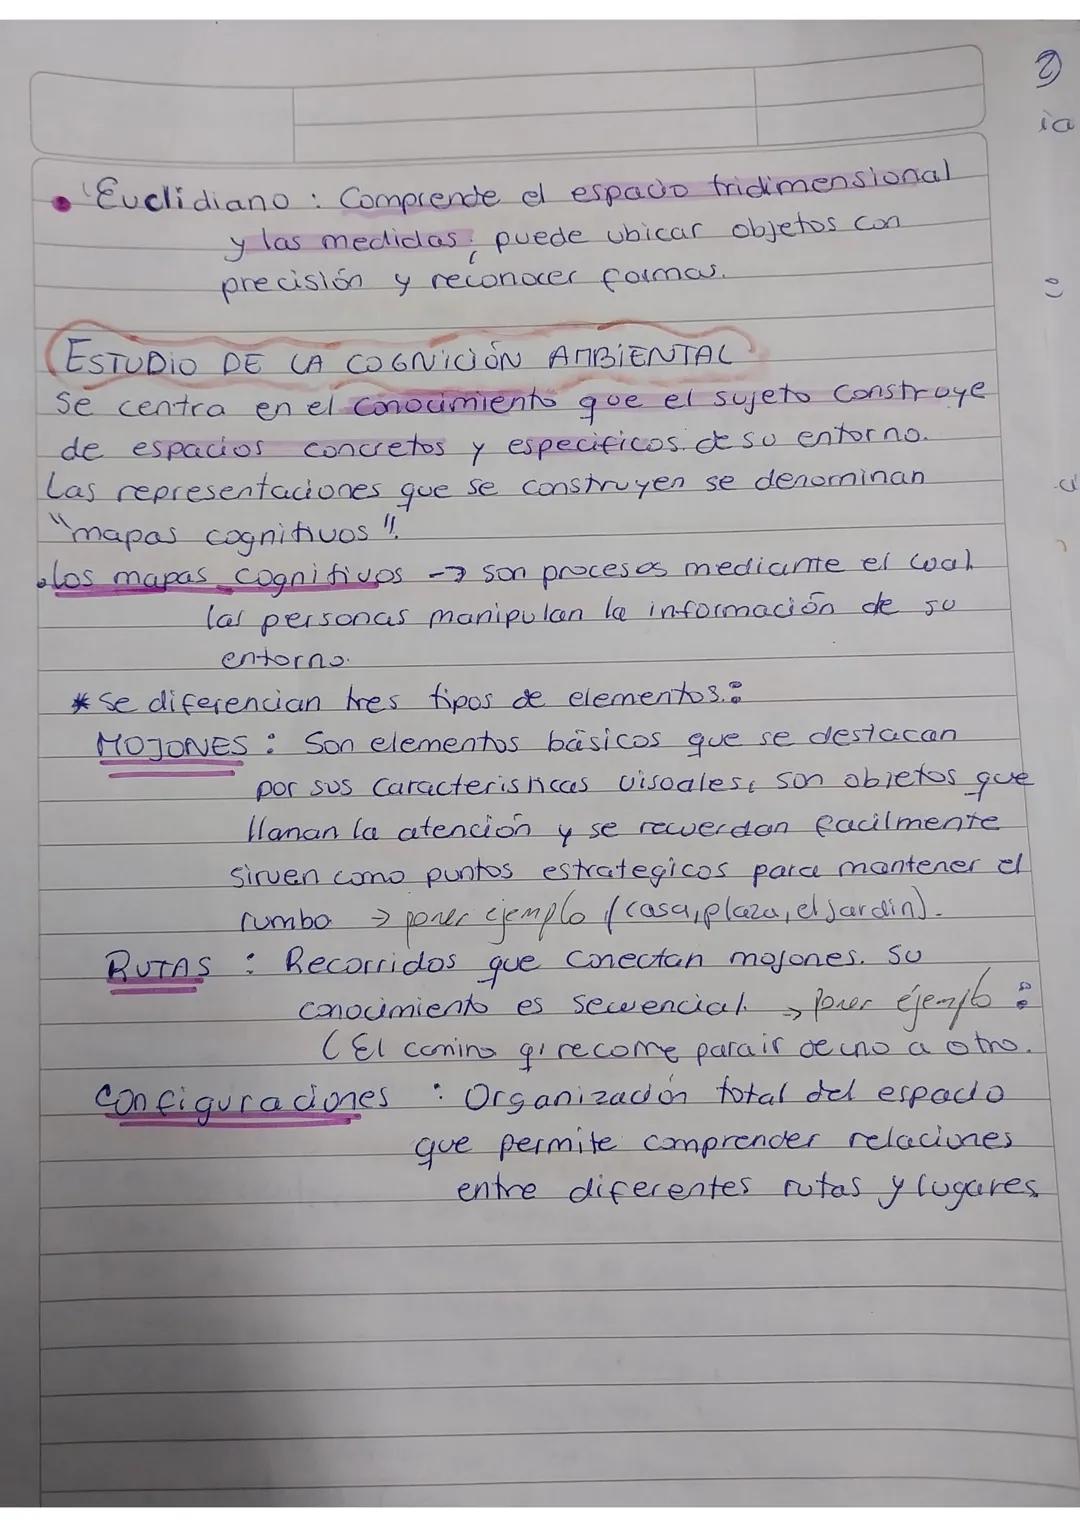 • Euclidiano : Comprende el espacio tridimensional
y las medidas; puede ubicar objetos con
precisión y reconocer formas.
ESTUDIO DE LA COGNICIÓN AMBIENTAL
Se centra en el conocimiento que el sujeto construye
de espacios concretos y especificos de su entorno.
Las representaciones que se construyen se denominan
"mapas cognitivos".
•los mapas cognitivos → son procesos mediante el cual
las personas manipulan la información de su
entorno.
* Se diferencian tres tipos de elementos:
MOJONES : Son elementos básicos que se destacan
por sus caracteristicas visuales, son objetos que
llaman la atención y se recuerdan facilmente
sirven como puntos estrategicos para mantener el
rumbo → poner ejemplo (casa, plaza, el jardin).
RUTAS : Recorridos que conectan mojones. Su
conocimiento es secuencial. → Poner ejemplo :
(El camino q' recorre para ir de uno a otro.
Configuraciones : Organización total del espacio
que permite comprender relaciones
entre diferentes rutas y lugares